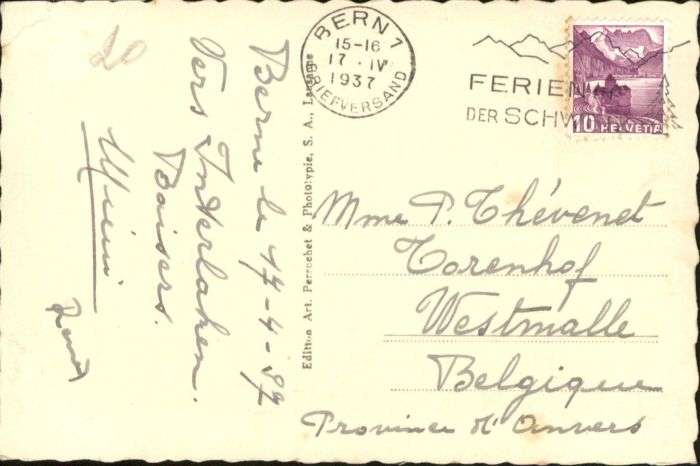 20
Berne le 17-4-37
Vers Interlaken.
Baisers.
Mimi
Edition Art. Perrochet & Phototypie, S. A., Lausanne
BERN 1
15-16
17. IV
1937
BRIEFVERSAND
FERIEN
DER SCHW
10 HELVETIA
Mme P. Thévenet
Torenhof
Westmalle
Belgique
Province d'Anvers